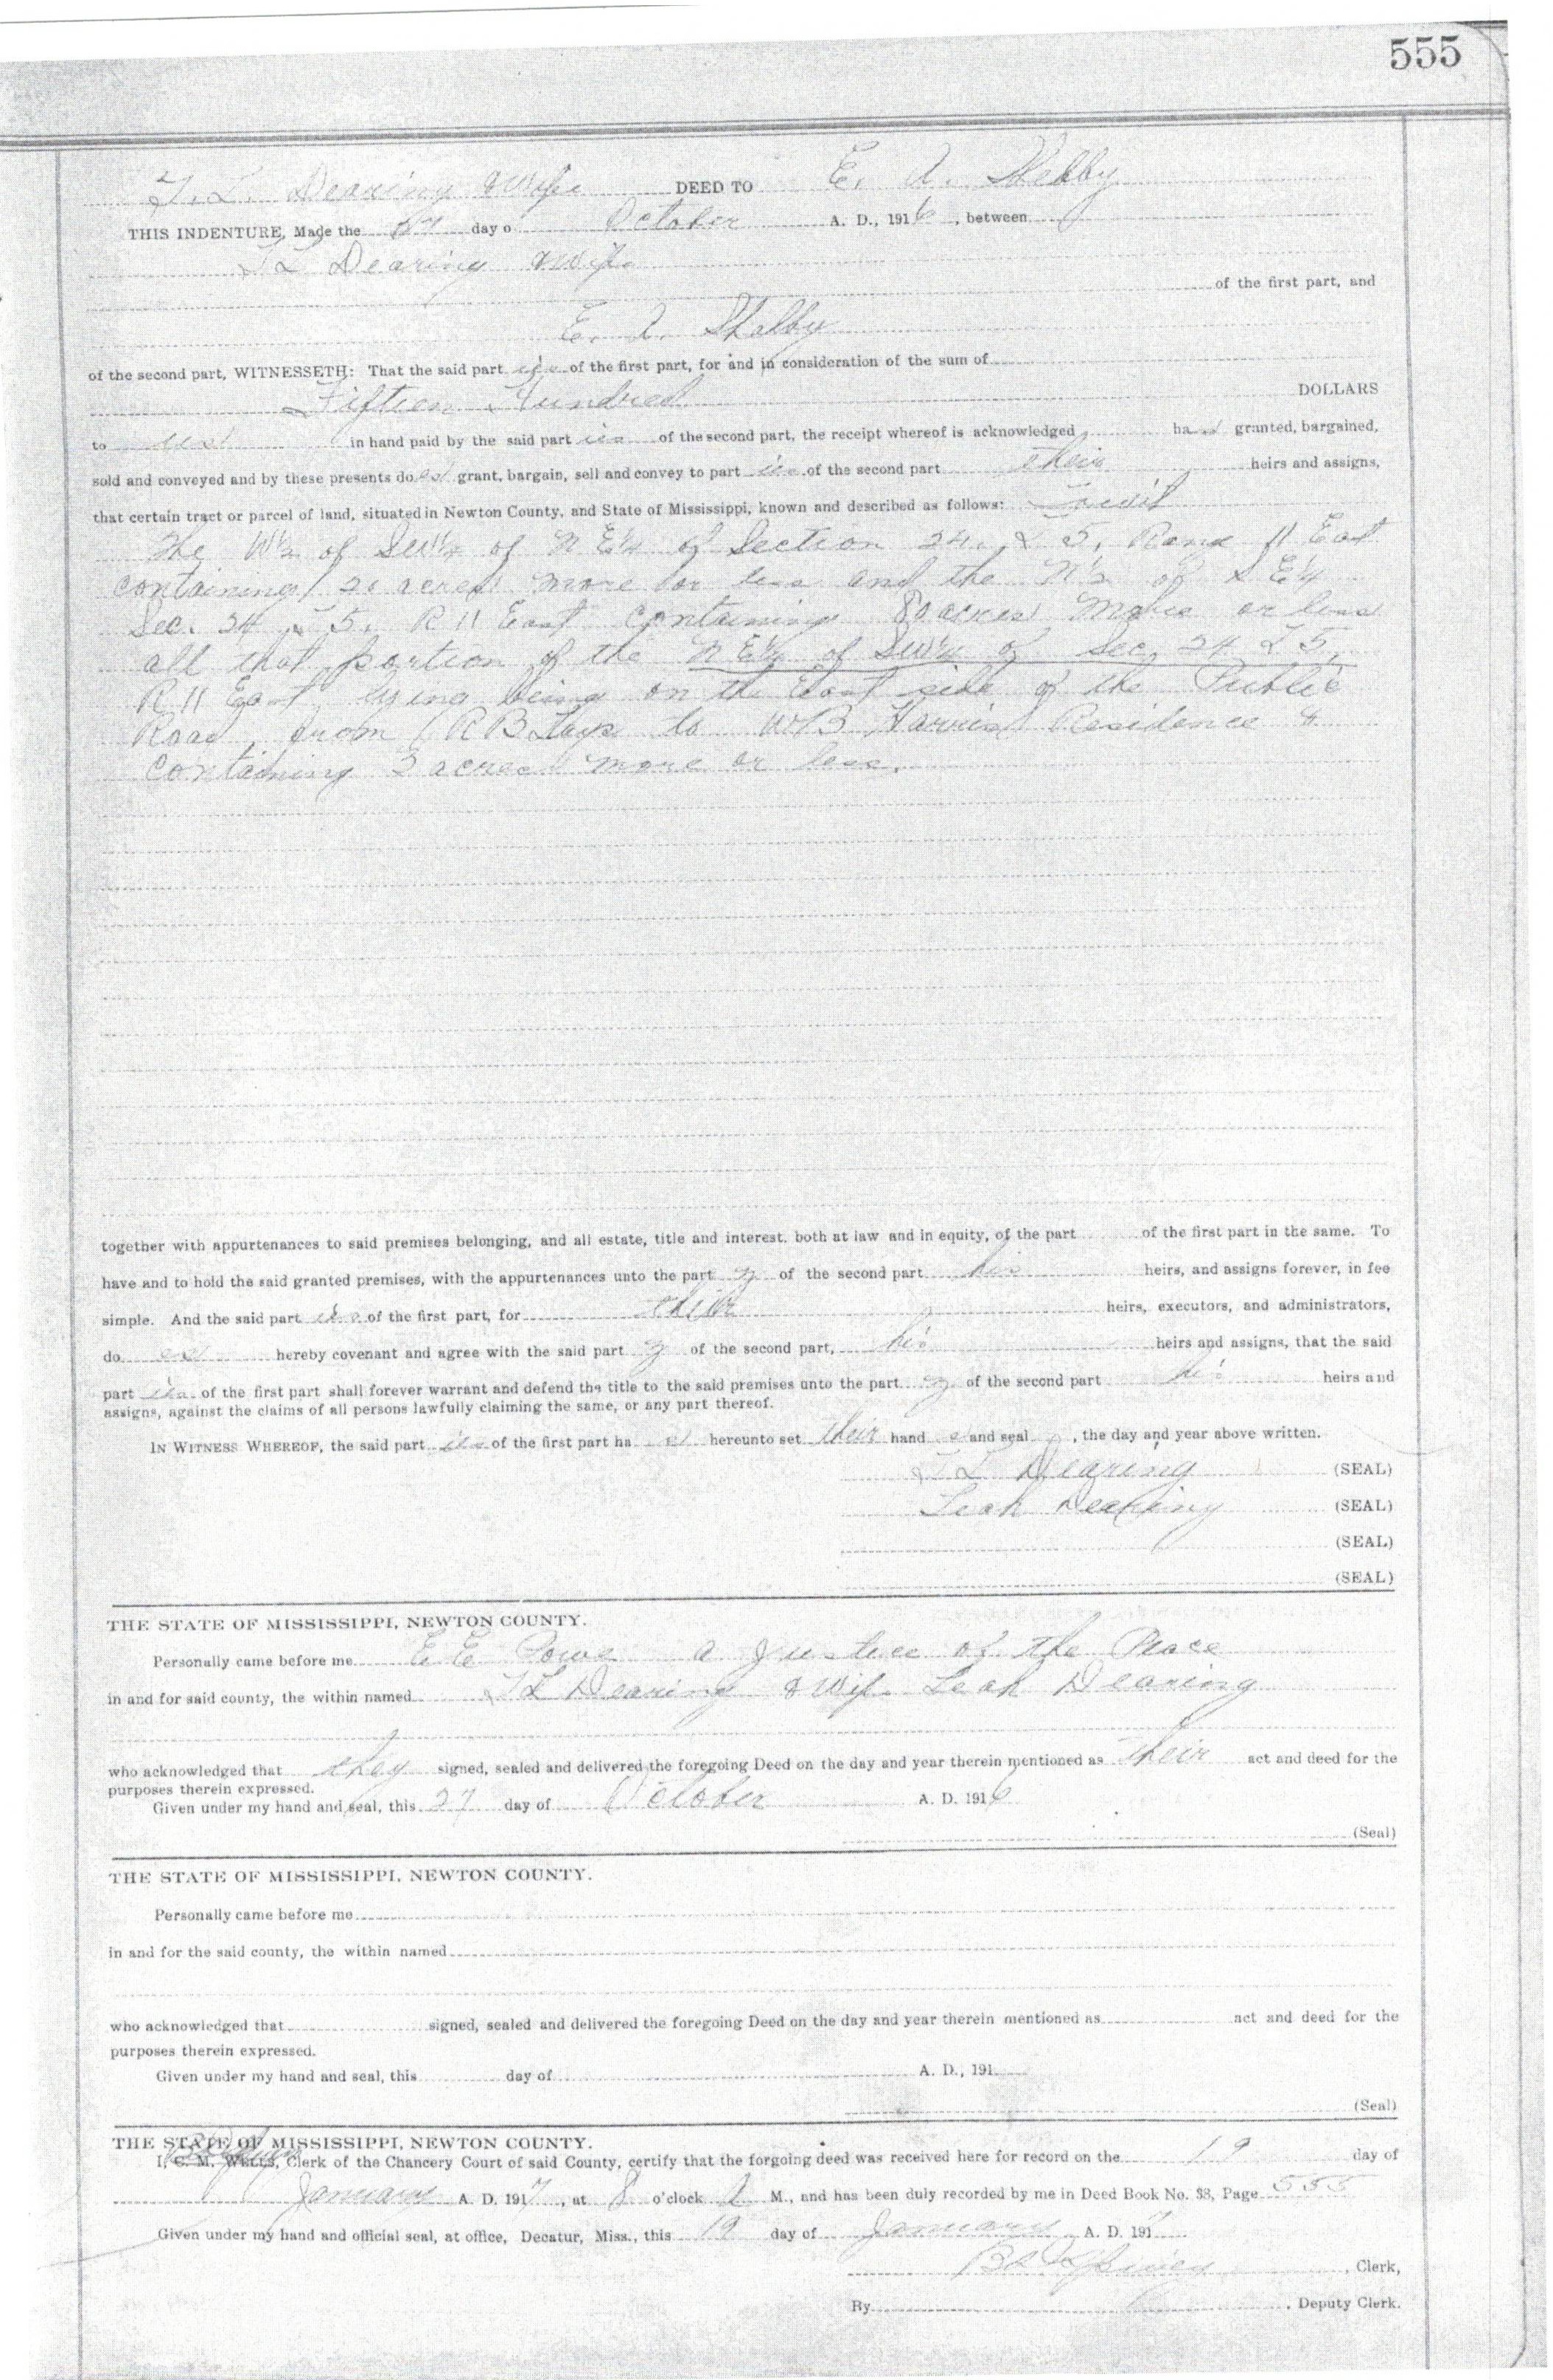 555
T. L. Dearing & Wife DEED TO E. A. Shelby
THIS INDENTURE, Made the 27 day o October A. D., 1916, between
T L Dearing & Wife
of the first part, and
E. A. Shelby
of the second part, WITNESSETH: That the said part ies of the first part, for and in consideration of the sum of
Fifteen Hundred DOLLARS
to us in hand paid by the said part ies of the second part, the receipt whereof is acknowledged ha s granted, bargained,
sold and conveyed and by these presents do es grant, bargain, sell and convey to part ies of the second part their heirs and assigns,
that certain tract or parcel of land, situated in Newton County, and State of Mississippi, known and described as follows: Towit
The W½ of SW¼ of N E¼ of Section 24, T 5, Range 11 East
containing 20 acres more or less and the N½ of S E¼
Sec. 24 T 5. R 11 East containing 80 acres more or less
all that portion of the N E¼ of SW¼ of Sec. 24 T 5,
R 11 East lying being on the East side of the Public
Road from R B to W B Harris Residence &
containing 3 acres more or less.
together with appurtenances to said premises belonging, and all estate, title and interest, both at law and in equity, of the part of the first part in the same. To
have and to hold the said granted premises, with the appurtenances unto the part y of the second part his heirs, and assigns forever, in fee
simple. And the said part ies of the first part, for their heirs, executors, and administrators,
do es hereby covenant and agree with the said part y of the second part, his heirs and assigns, that the said
part ies of the first part shall forever warrant and defend the title to the said premises unto the part y of the second part his heirs and
assigns, against the claims of all persons lawfully claiming the same, or any part thereof.
IN WITNESS WHEREOF, the said part ies of the first part ha s hereunto set their hand s and seal s, the day and year above written.
T L Dearing (SEAL)
Leah Dearing (SEAL)
(SEAL)
(SEAL)
THE STATE OF MISSISSIPPI, NEWTON COUNTY.
Personally came before me E E Powe a Justice of the Peace
in and for said county, the within named T L Dearing & Wife Leah Dearing
who acknowledged that they signed, sealed and delivered the foregoing Deed on the day and year therein mentioned as their act and deed for the
purposes therein expressed.
Given under my hand and seal, this 27 day of October A. D. 1916
(Seal)
THE STATE OF MISSISSIPPI, NEWTON COUNTY.
Personally came before me
in and for the said county, the within named
who acknowledged that signed, sealed and delivered the foregoing Deed on the day and year therein mentioned as act and deed for the
purposes therein expressed.
Given under my hand and seal, this day of A. D., 191
(Seal)
THE STATE OF MISSISSIPPI, NEWTON COUNTY.
I, C. M. WELLS, Clerk of the Chancery Court of said County, certify that the forgoing deed was received here for record on the 19 day of
January A. D. 1917, at 8 o'clock A M., and has been duly recorded by me in Deed Book No. 38, Page 555
Given under my hand and official seal, at office, Decatur, Miss., this 19 day of January A. D. 1917
, Clerk,
By , Deputy Clerk.